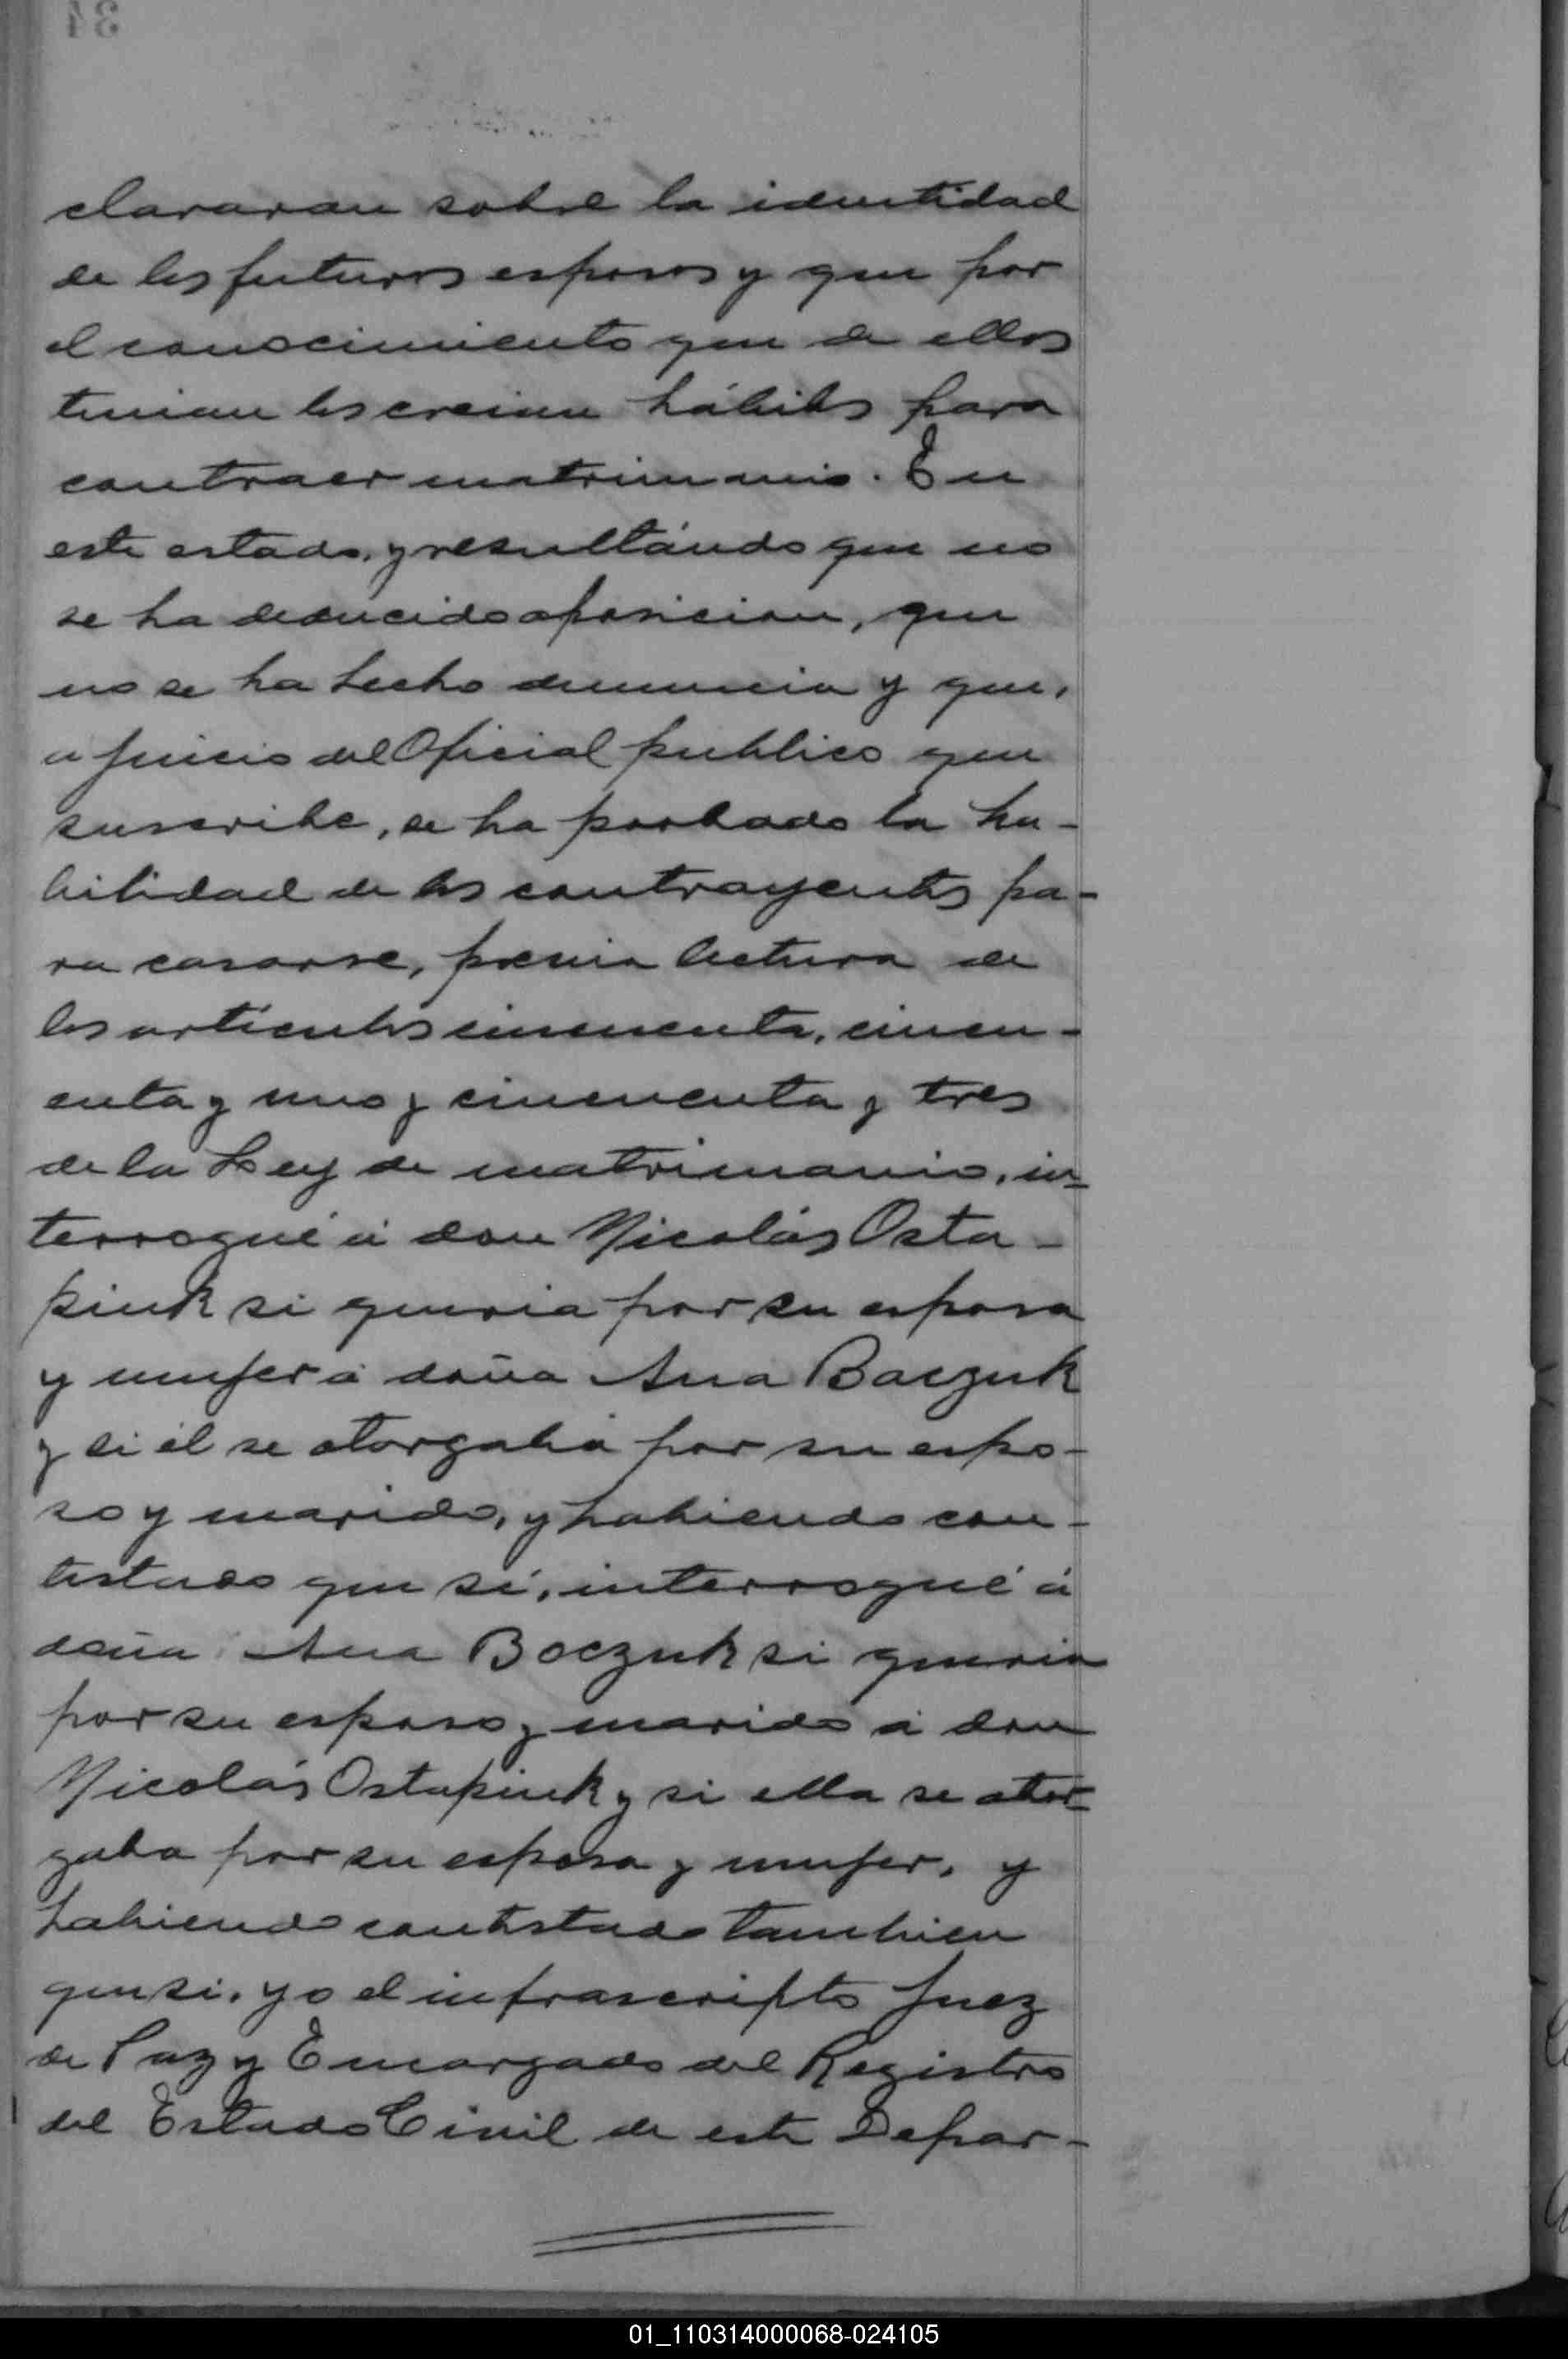 clararan sobre la identidad
de los futuros esposos y que por
el conocimiento que de ellos
tenian los creian hábiles para
contraer matrimonio. En
este estado, y resultándo que no
se ha deducido oposicion, que
no se ha hecho denuncia y que,
a juicio del Oficial publico que
suscribe, se ha probado la ha-
bilidad de los contrayentes pa-
ra casarse, prévia lectura de
los artículos cincuenta, cincu-
enta y uno y cincuenta y tres
de la Ley de matrimonio, in-
terrogué á don Nicolás Osta-
piuk si queria por su esposa
y mujer á doña Ana Baczuk
y si él se otorgaba por su espo-
so y marido, y habiendo con-
testado que sí, interrogué á
doña Ana Boczuk si queria
por su esposo y marido á don
Nicolás Ostapiuk y si ella se otor-
gaba por su esposa y mujer, y
habiendo contestado tambien
que si, yo el infrascripto Juez
de Paz y Encargado del Registro
del Estado Civil de este Depar-
01_110314000068-024105